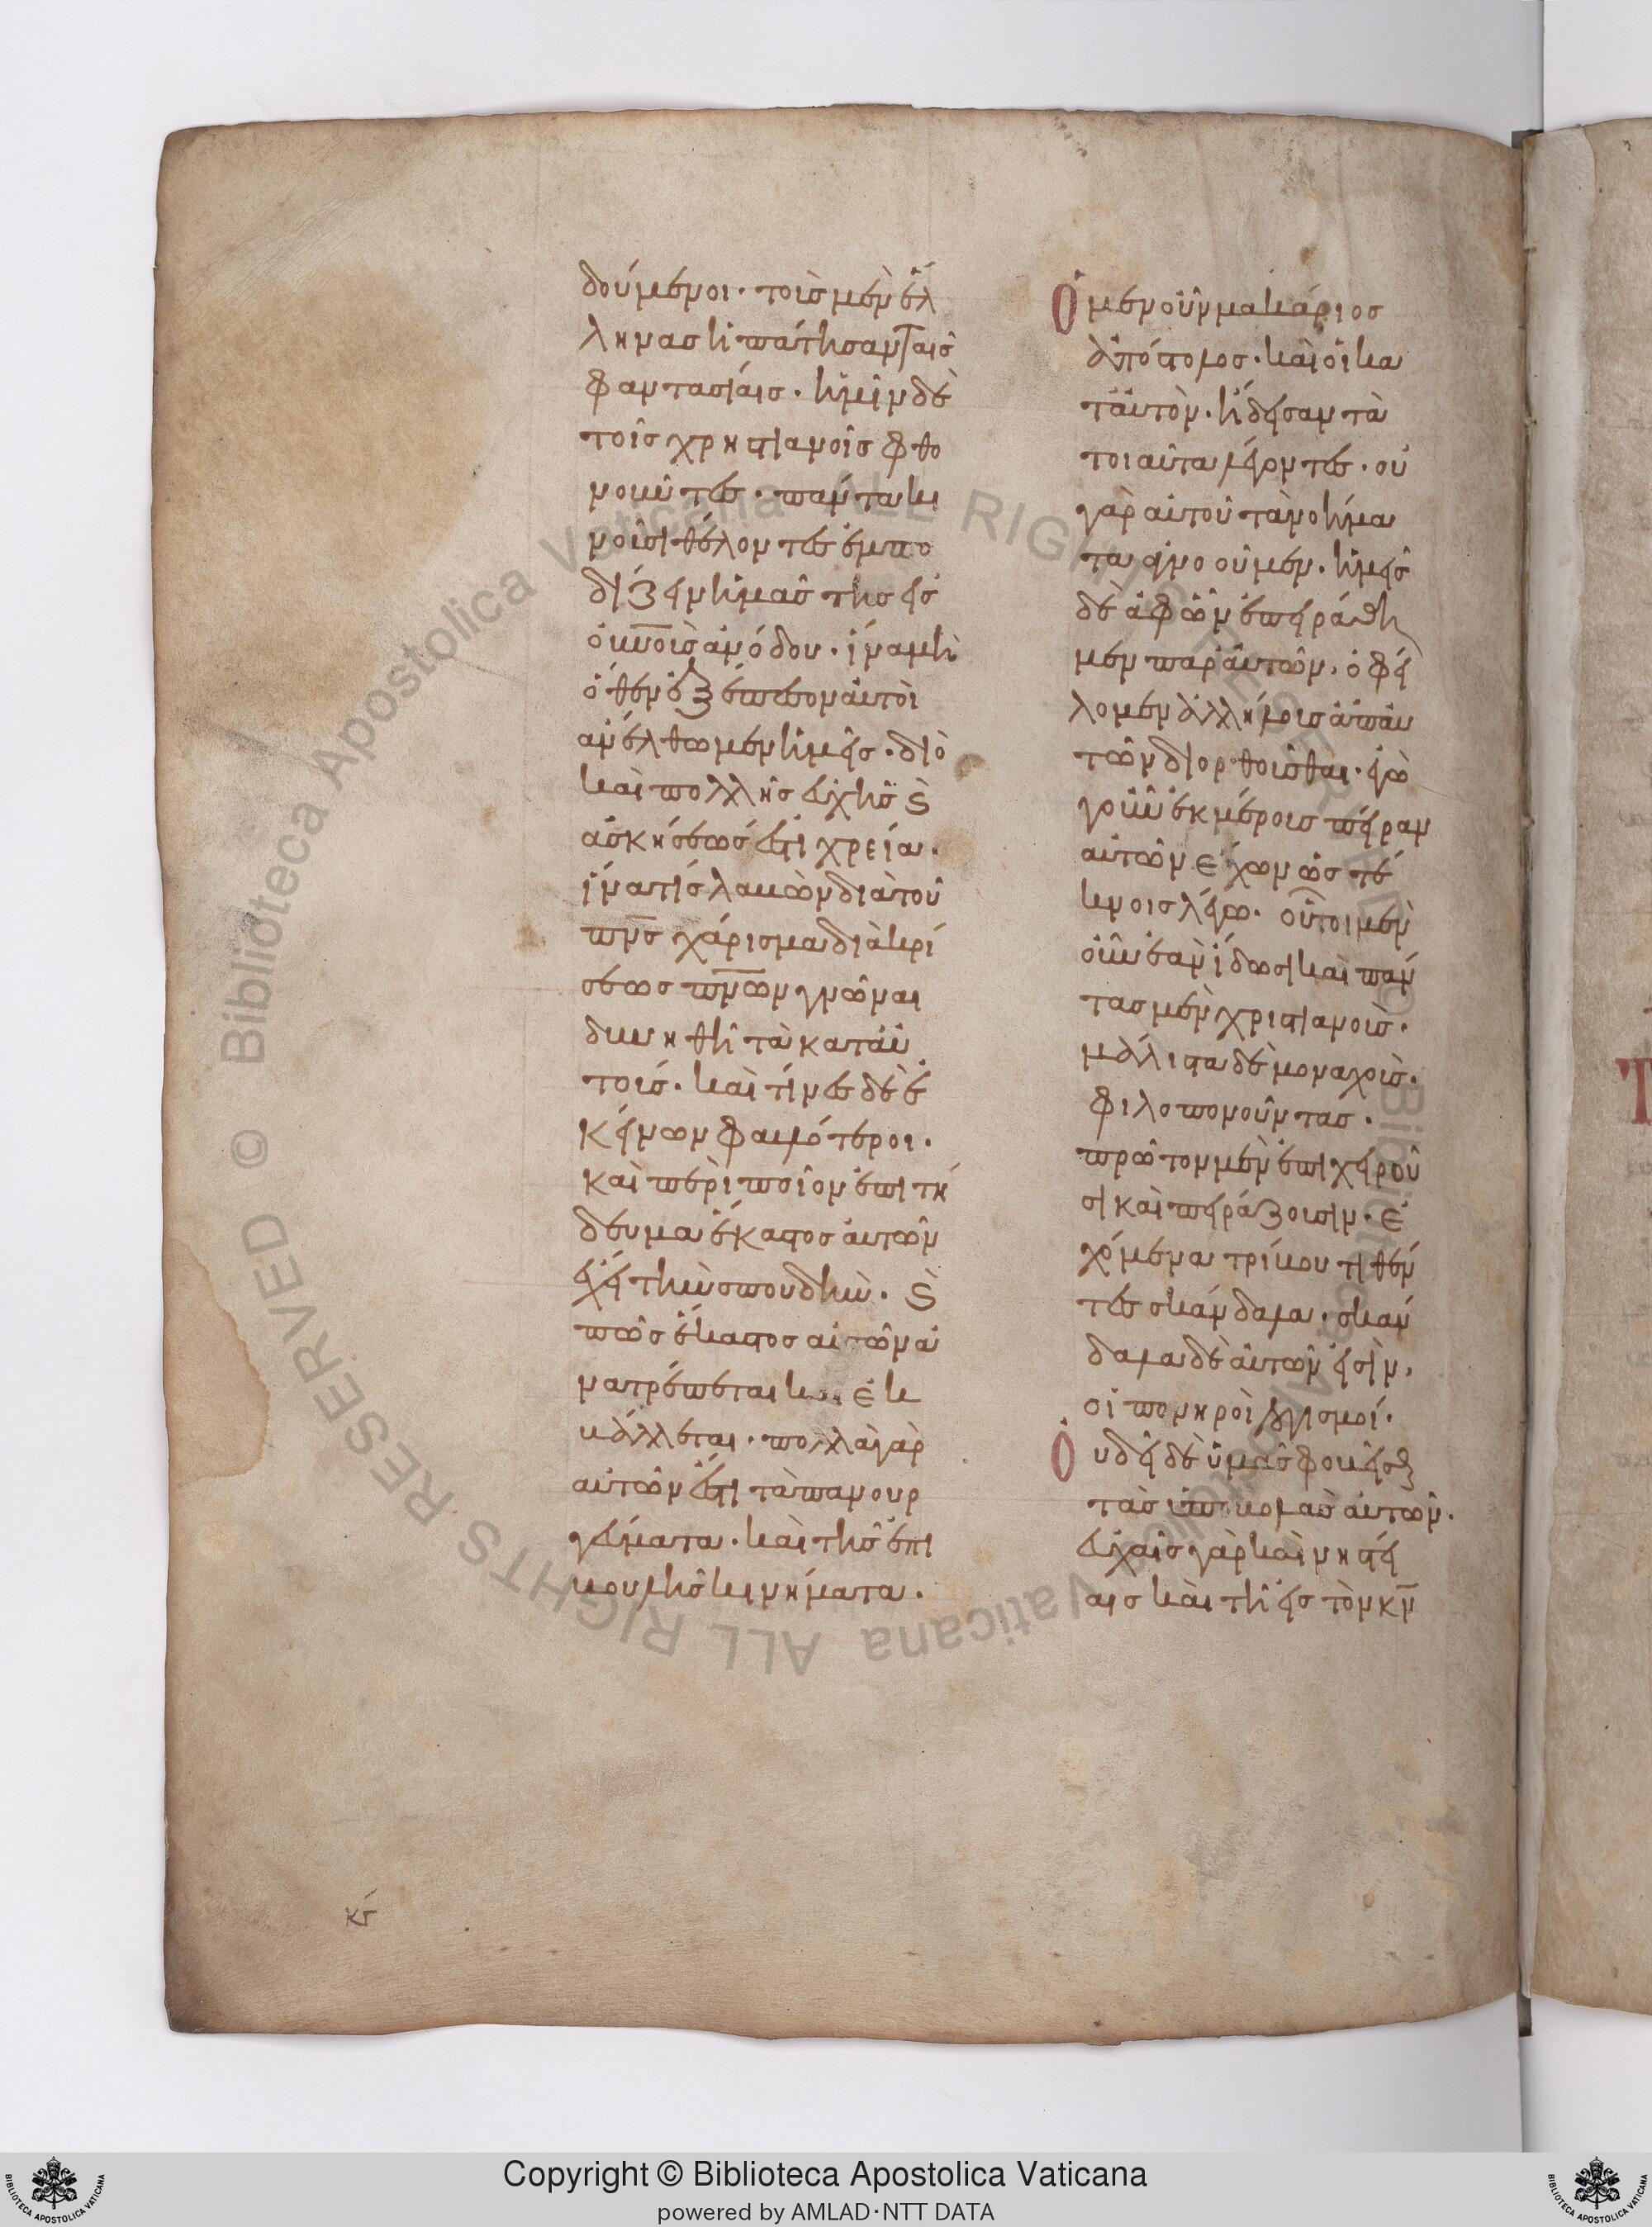 δούμενοι· τοὶς μὲν ἕλ
ληνας ἠπάτησαν ταῖς
φαντασίαις· ἡμῖν δὲ
τοῖς χρηστιανοῖς φθο
νοῦντες· πάντα κι
νοῦσι θέλοντες ἐμπο
δίζειν ἡμᾶς τῆς εἰς
οὐνοὺς ἀνόδου· ἵνα μὴ
ὅθεν ἐξέπεσον αὐτοὶ
ἀνέλθωμεν ἡμεῖς· διὸ
καὶ πολλῆς εὐχῆς ϗ
ἀσκήσεώς ἐστι χρεία·
ἵνα τίς λαβὼν διὰ τοῦ
πνς χάρισμα διακρί
σεως πνων γνῶναι
δυνηθῆ τὰ κατ' αὐ
τούς· καὶ τίνες δὲ ἐ
κείνων φαυλότεροι·
καὶ περὶ ποῖον ἐπιτή
δευμα ἕκαστος αὐτῶν
ἔχει τὴν σπουδὴν· ϗ
πῶς ἕκαστος αὐτῶν ἀ
νατρέπεται καὶ ἐκ
βάλλεται· πολλὰ γὰρ
αὐτῶν ἐστι τὰ πανουρ
γεύματα· καὶ τῆς ἐπι
βουλῆς κινήματα·
κς
Ὁ μὲν οὖν μακάριος
ἀπόστολος· καὶ οἱ κα
τ' αὐτὸν· ἤδεισαν τὰ
τοιαῦτα λέγοντες· οὐ
γὰρ αὐτοῦ τὰ νοήμα
τα ἀγνοοῦμεν· ἡμεῖς
δὲ ἀφ' ὧν ἐπειράθη
μεν παρ' αὐτῶν· ὀφεί
λομεν ἀλλήλους ἀπ' αὐ
τῶν διορθοῦσθαι· ἐγὼ
γοῦν ἐκ μέρους πεῖραν
αὐτῶν ἔχων ὡς τέ
κνοις λέγω· οὗτοι μὲν
οὖν ἐὰν ἴδωσι καὶ πάν
τας μὲν χριστιανοὺς·
μάλιστα δὲ μοναχοὺς·
φιλοπονοῦντας·
πρῶτον μὲν ἐπιχειροῦ
σι καὶ πειράζουσιν· ἐ
χόμενα τρίβου τιθέν
τες σκάνδαλα· σκάν
δαλα δὲ αὐτῶν εἰσὶν·
οἱ πονηροὶ λογισμοί·
Οὐ δεῖ δὲ ὑμᾶς φοβεῖσθαι
τὰς ὑποβολὰς αὐτῶν·
εὐχαῖς γὰρ καὶ νηστεί
αις καὶ τῆ εἰς τὸν κν
Copyright © Biblioteca Apostolica Vaticana
powered by AMLAD·NTT DATA